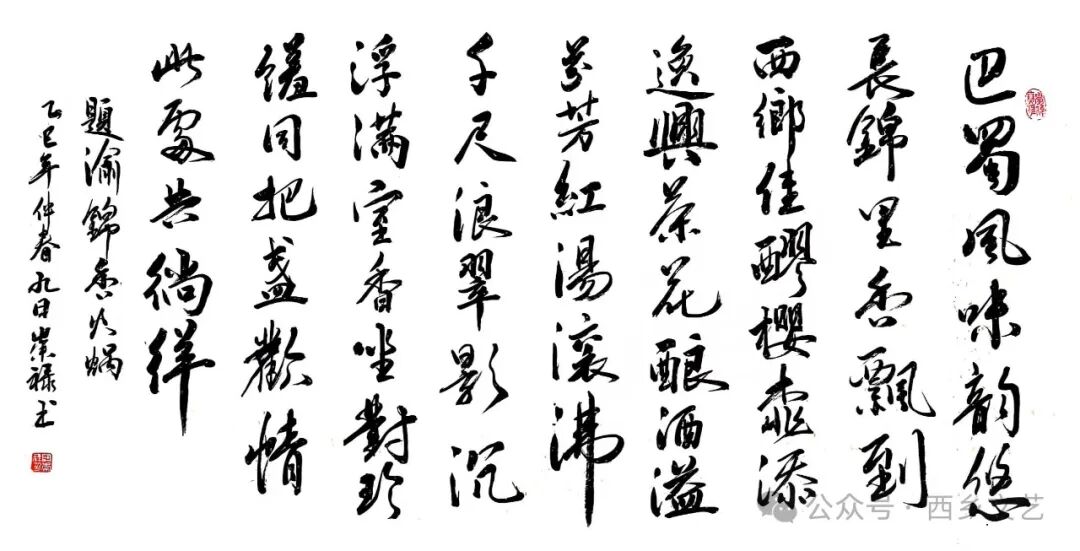 巴蜀風味韵悠
長錦里香飄到
西鄉佳醪櫻桃添
逸興茶花酿酒溢
芬芳紅湯滚沸
千尺浪翠影沉
浮滿室香坐對珍
饈同把盞歡情
此處共徜徉
題渝錦香火鍋
乙巳年仲春九日崇禄书
公众号 · 西乡文艺